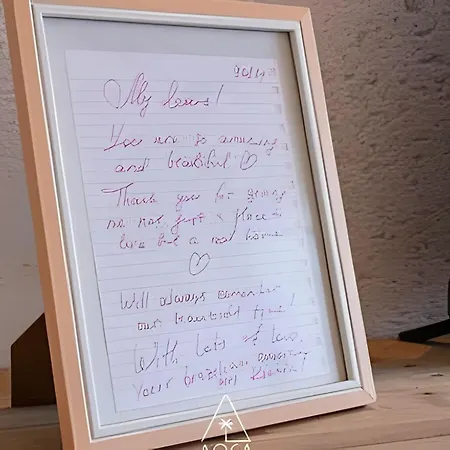 My loves!
You are so amazing
and beautiful ♡
Thank you for giving
us not just a place to
live but a real home
♡
Will always remember
our beautiful time!
With lots of love,
Your brazilian